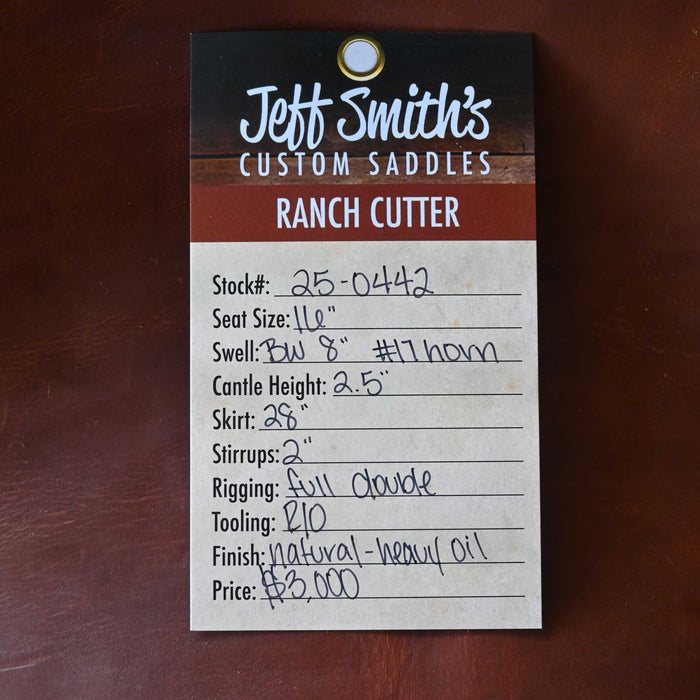 Jeff Smith's
CUSTOM SADDLES
RANCH CUTTER
Stock#: 25-0442
Seat Size: 16"
Swell: BW 8" #17 horn
Cantle Height: 2.5"
Skirt: 28"
Stirrups: 2"
Rigging: full double
Tooling: R/O
Finish: natural-heavy oil
Price: $3,000